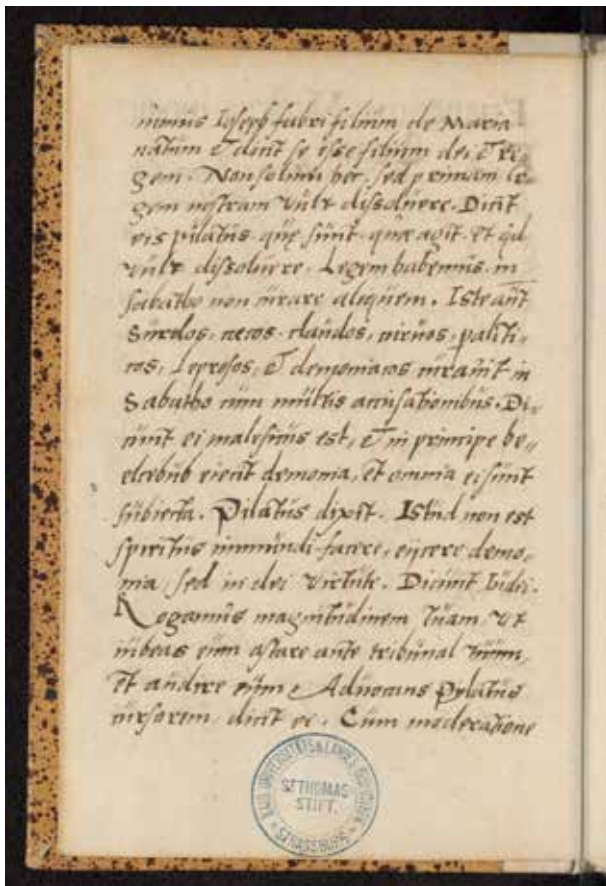 nimus Ioseph fabri filium de Maria
natum & dicit se esse filium dei & re
gem. Non solum hec, sed primum le
gem nostram vult dissoluere. Dicit
eis pilatus. que sunt quæ agit, et qd
vult dissoluere. Legem habemus in
sabatho non curare aliquem. Iste aūt
Surdos, cecos, claudos, curuos, paliti-
cos, leprosos, & demoniacos curauit in
Sabatho cum multis accusationibus. Di-
cunt ei maleficus est, & in principe be-
elzebub eiecit demonia, et omnia ei sunt
subiecta. Pilatus dixit. Istud non est
spiritus immundi facere, eijcere demo-
nia sed in dei virtute. Dicunt Iudei.
Rogamus magnitudinem tuam, vt
iubeas eum astare ante tribunal tuum,
et audire eum. Aduocans Pylatus
cursorem, dicit ei. Cum moderatione
KAIS. UNIVERSITÄTS & LANDES BIBLIOTHEK
SZTHOMAS
STIFT.
STRASSBURG